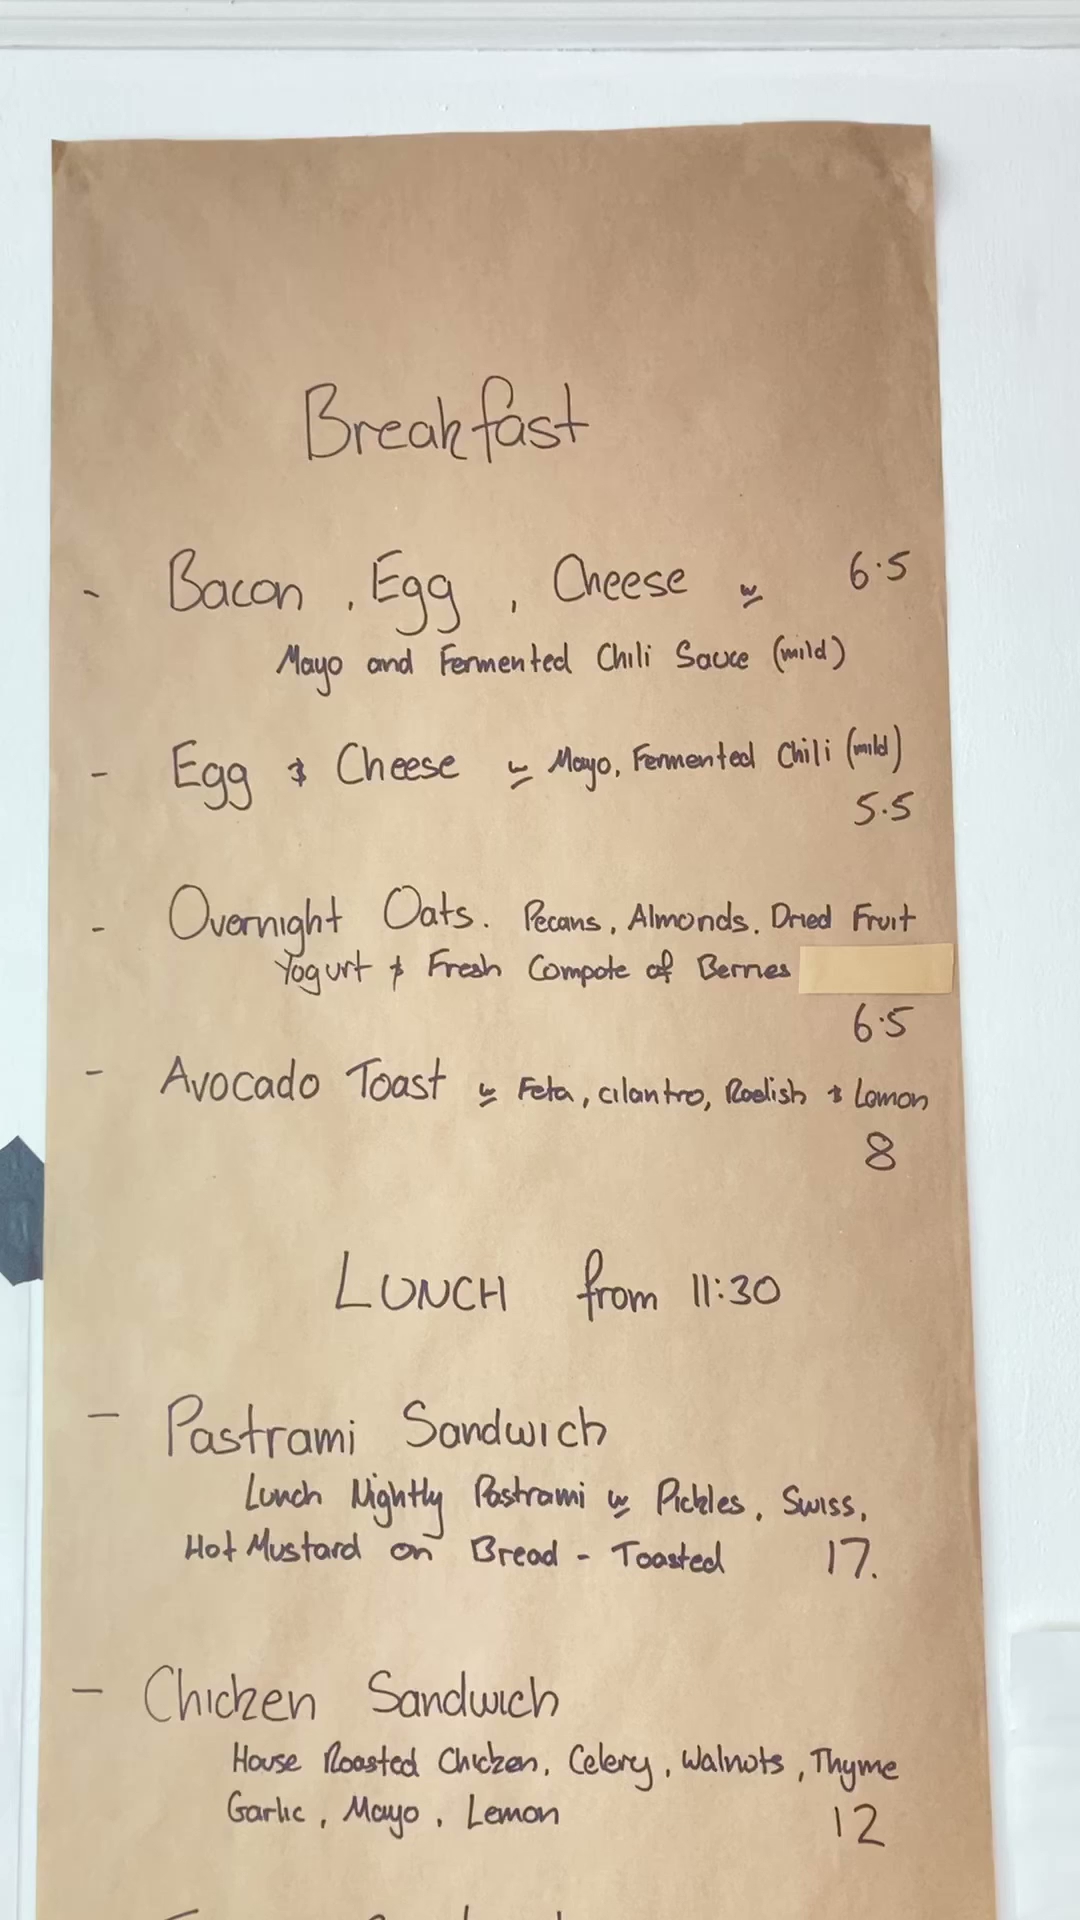 Breakfast
- Bacon, Egg, Cheese w 6.5
Mayo and Fermented Chili Sauce (mild)
- Egg & Cheese w Mayo, Fermented Chili (mild)
5.5
- Overnight Oats. Pecans, Almonds. Dried Fruit
Yogurt & Fresh Compote of Berries
6.5
- Avocado Toast w Feta, cilantro, Radish & Lemon
8
LUNCH from 11:30
- Pastrami Sandwich
Lunch Nightly Pastrami w Pickles, Swiss,
Hot Mustard on Bread - Toasted 17.
- Chicken Sandwich
House Roasted Chicken, Celery, Walnuts, Thyme
Garlic, Mayo, Lemon
12